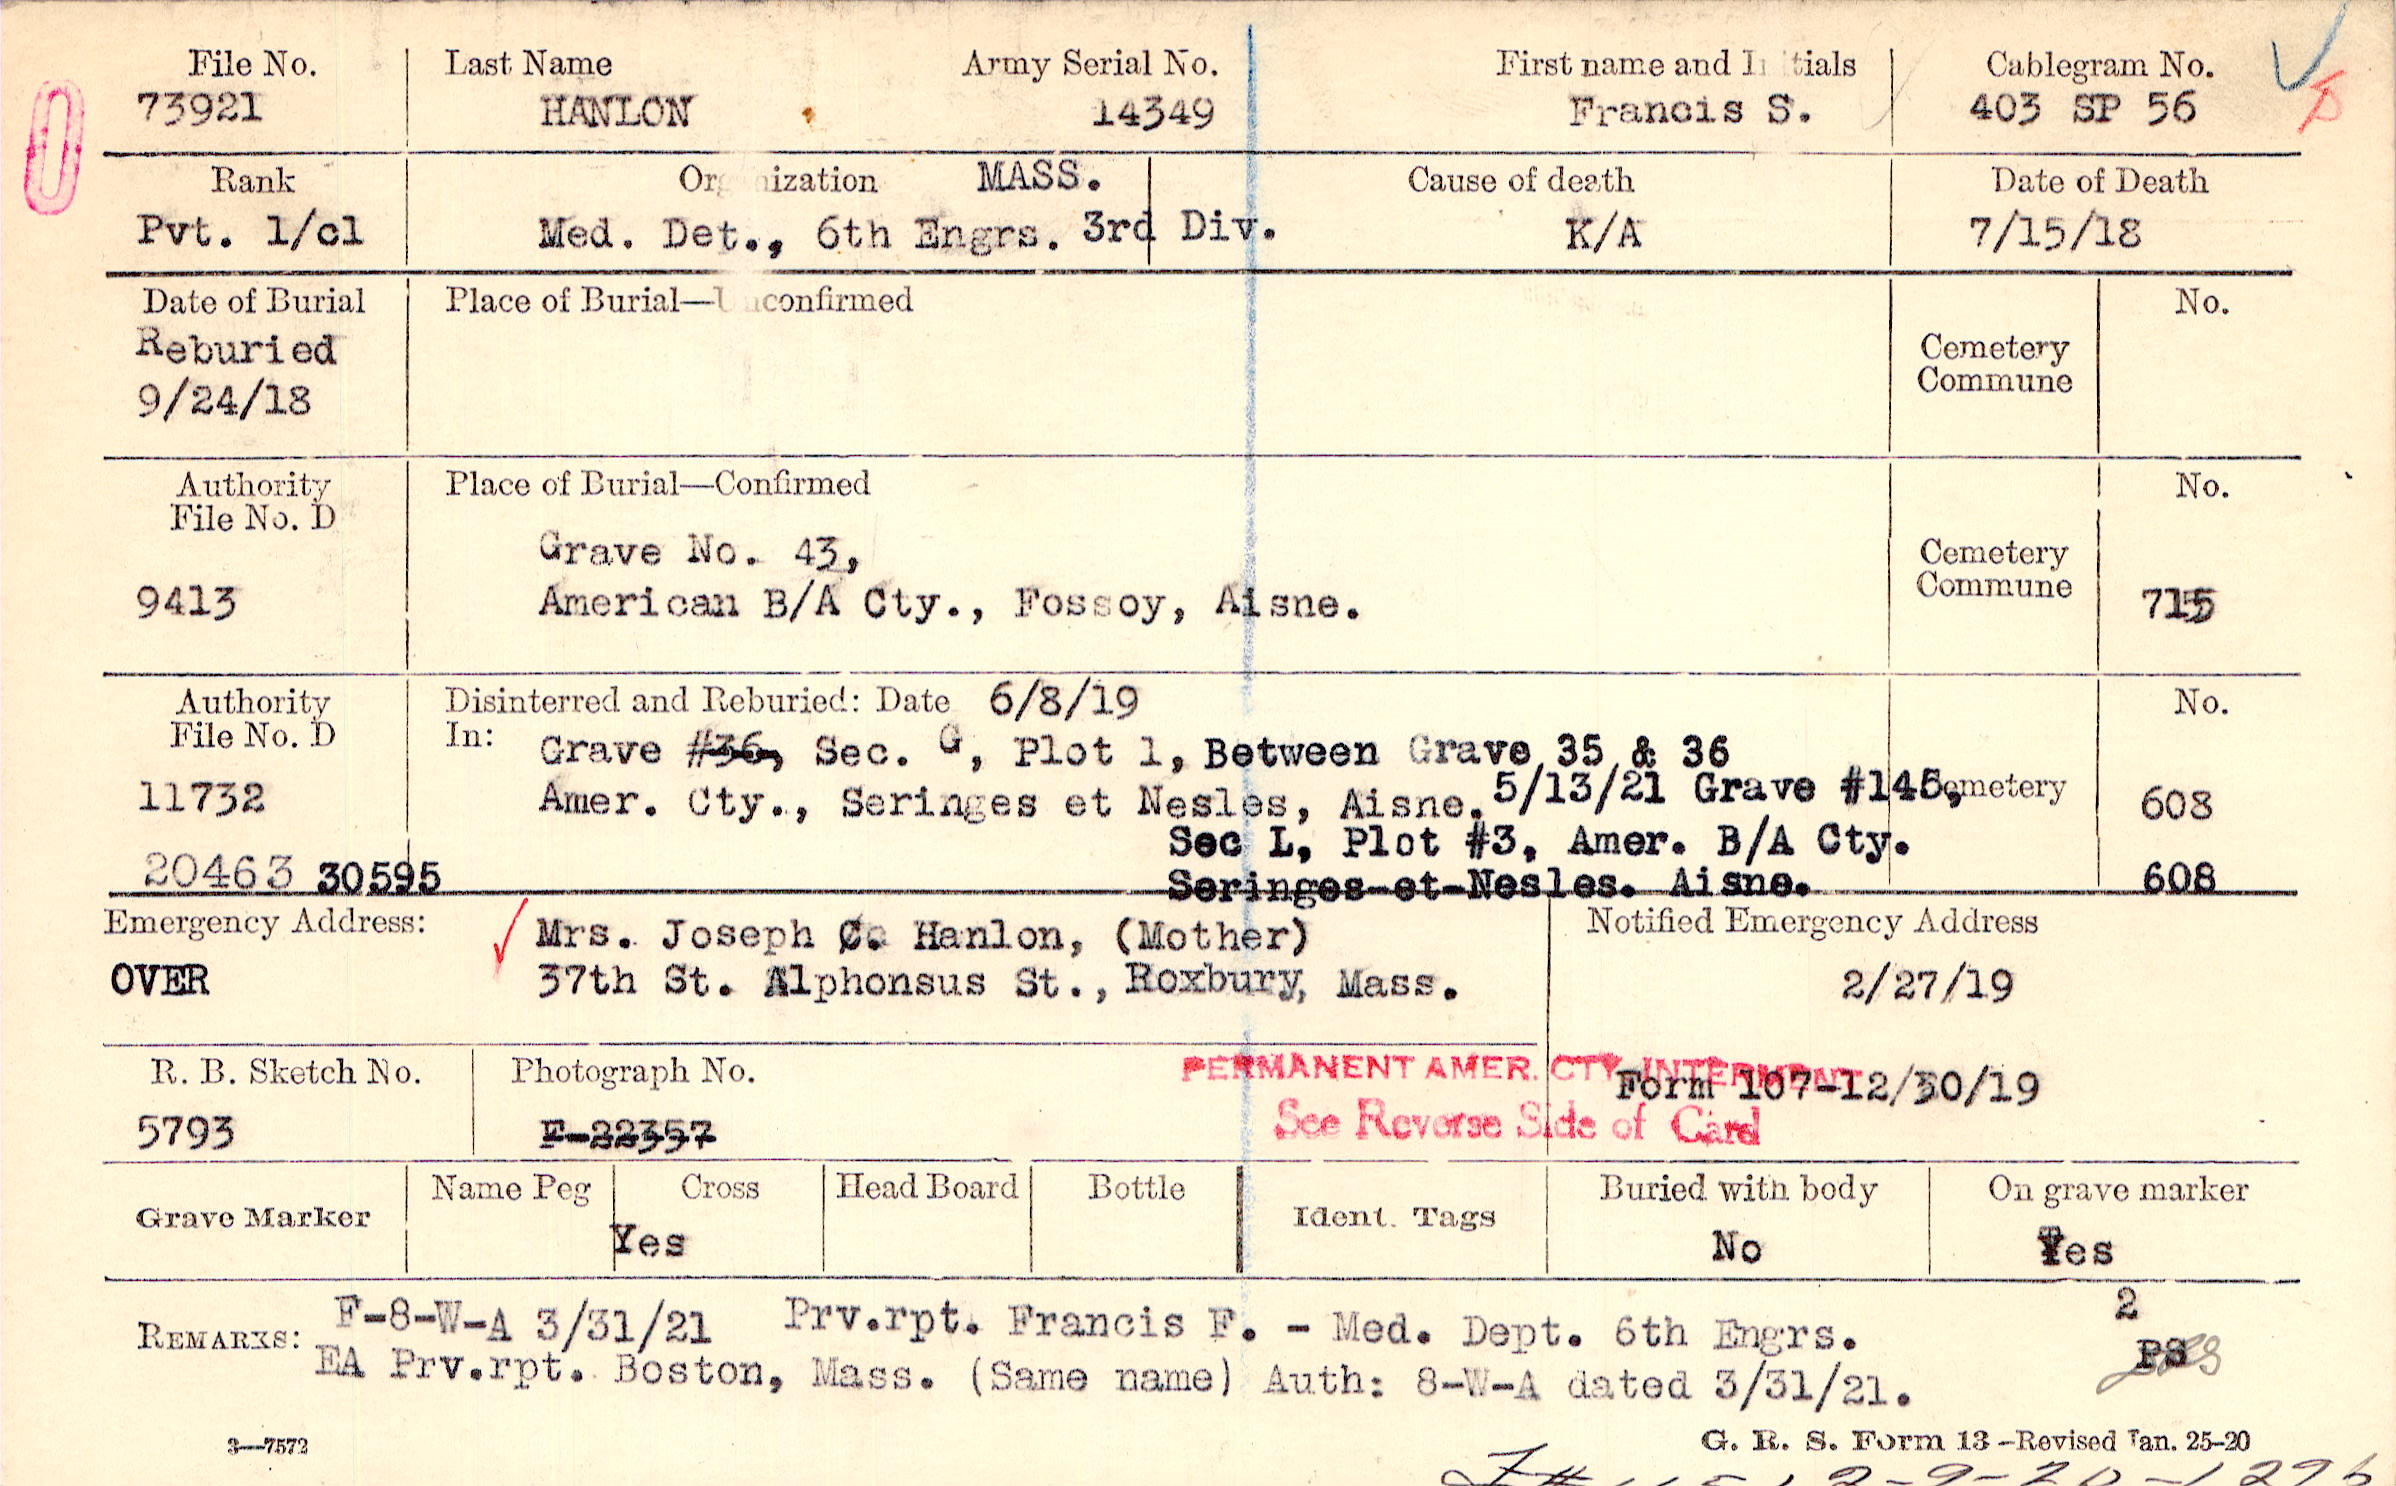 File No. Last Name Army Serial No. First name and Initials Cablegram No.
73921 HANLON 14349 Francis S. 403 SP 56
Rank Organization MASS. Cause of death Date of Death
Pvt. 1/cl Med. Det., 6th Engrs. 3rd Div. K/A 7/15/18
Date of Burial Place of Burial—Unconfirmed No.
Reburied
9/24/18
Cemetery
Commune
Authority Place of Burial—Confirmed No.
File No. D
Grave No. 43,
9413 American B/A Cty., Fossoy, Aisne.
Cemetery
Commune
715
Authority Disinterred and Reburied: Date 6/8/19 No.
File No. D In: Grave #36, Sec. G, Plot 1, Between Grave 35 & 36
11732 Amer. Cty., Seringes et Nesles, Aisne. 5/13/21 Grave #145, Cemetery 608
Sec L, Plot #3, Amer. B/A Cty.
20463 30595 Seringes-et-Nesles. Aisne. 608
Emergency Address: Mrs. Joseph C. Hanlon, (Mother) Notified Emergency Address
OVER 37th St. Alphonsus St., Roxbury, Mass. 2/27/19
R. B. Sketch No. Photograph No. PERMANENT AMER. CTY. INTERMENT
Form 107-12/30/19
5793 F-22357 See Reverse Side of Card
Name Peg Cross Head Board Bottle Buried with body On grave marker
Grave Marker Yes Ident. Tags No Yes
2
REMARKS: F-8-W-A 3/31/21 Prv.rpt. Francis F. - Med. Dept. 6th Engrs.
EA Prv.rpt. Boston, Mass. (Same name) Auth: 8-W-A dated 3/31/21.
PS
3—7572 G. R. S. Form 13 -Revised Jan. 25-20